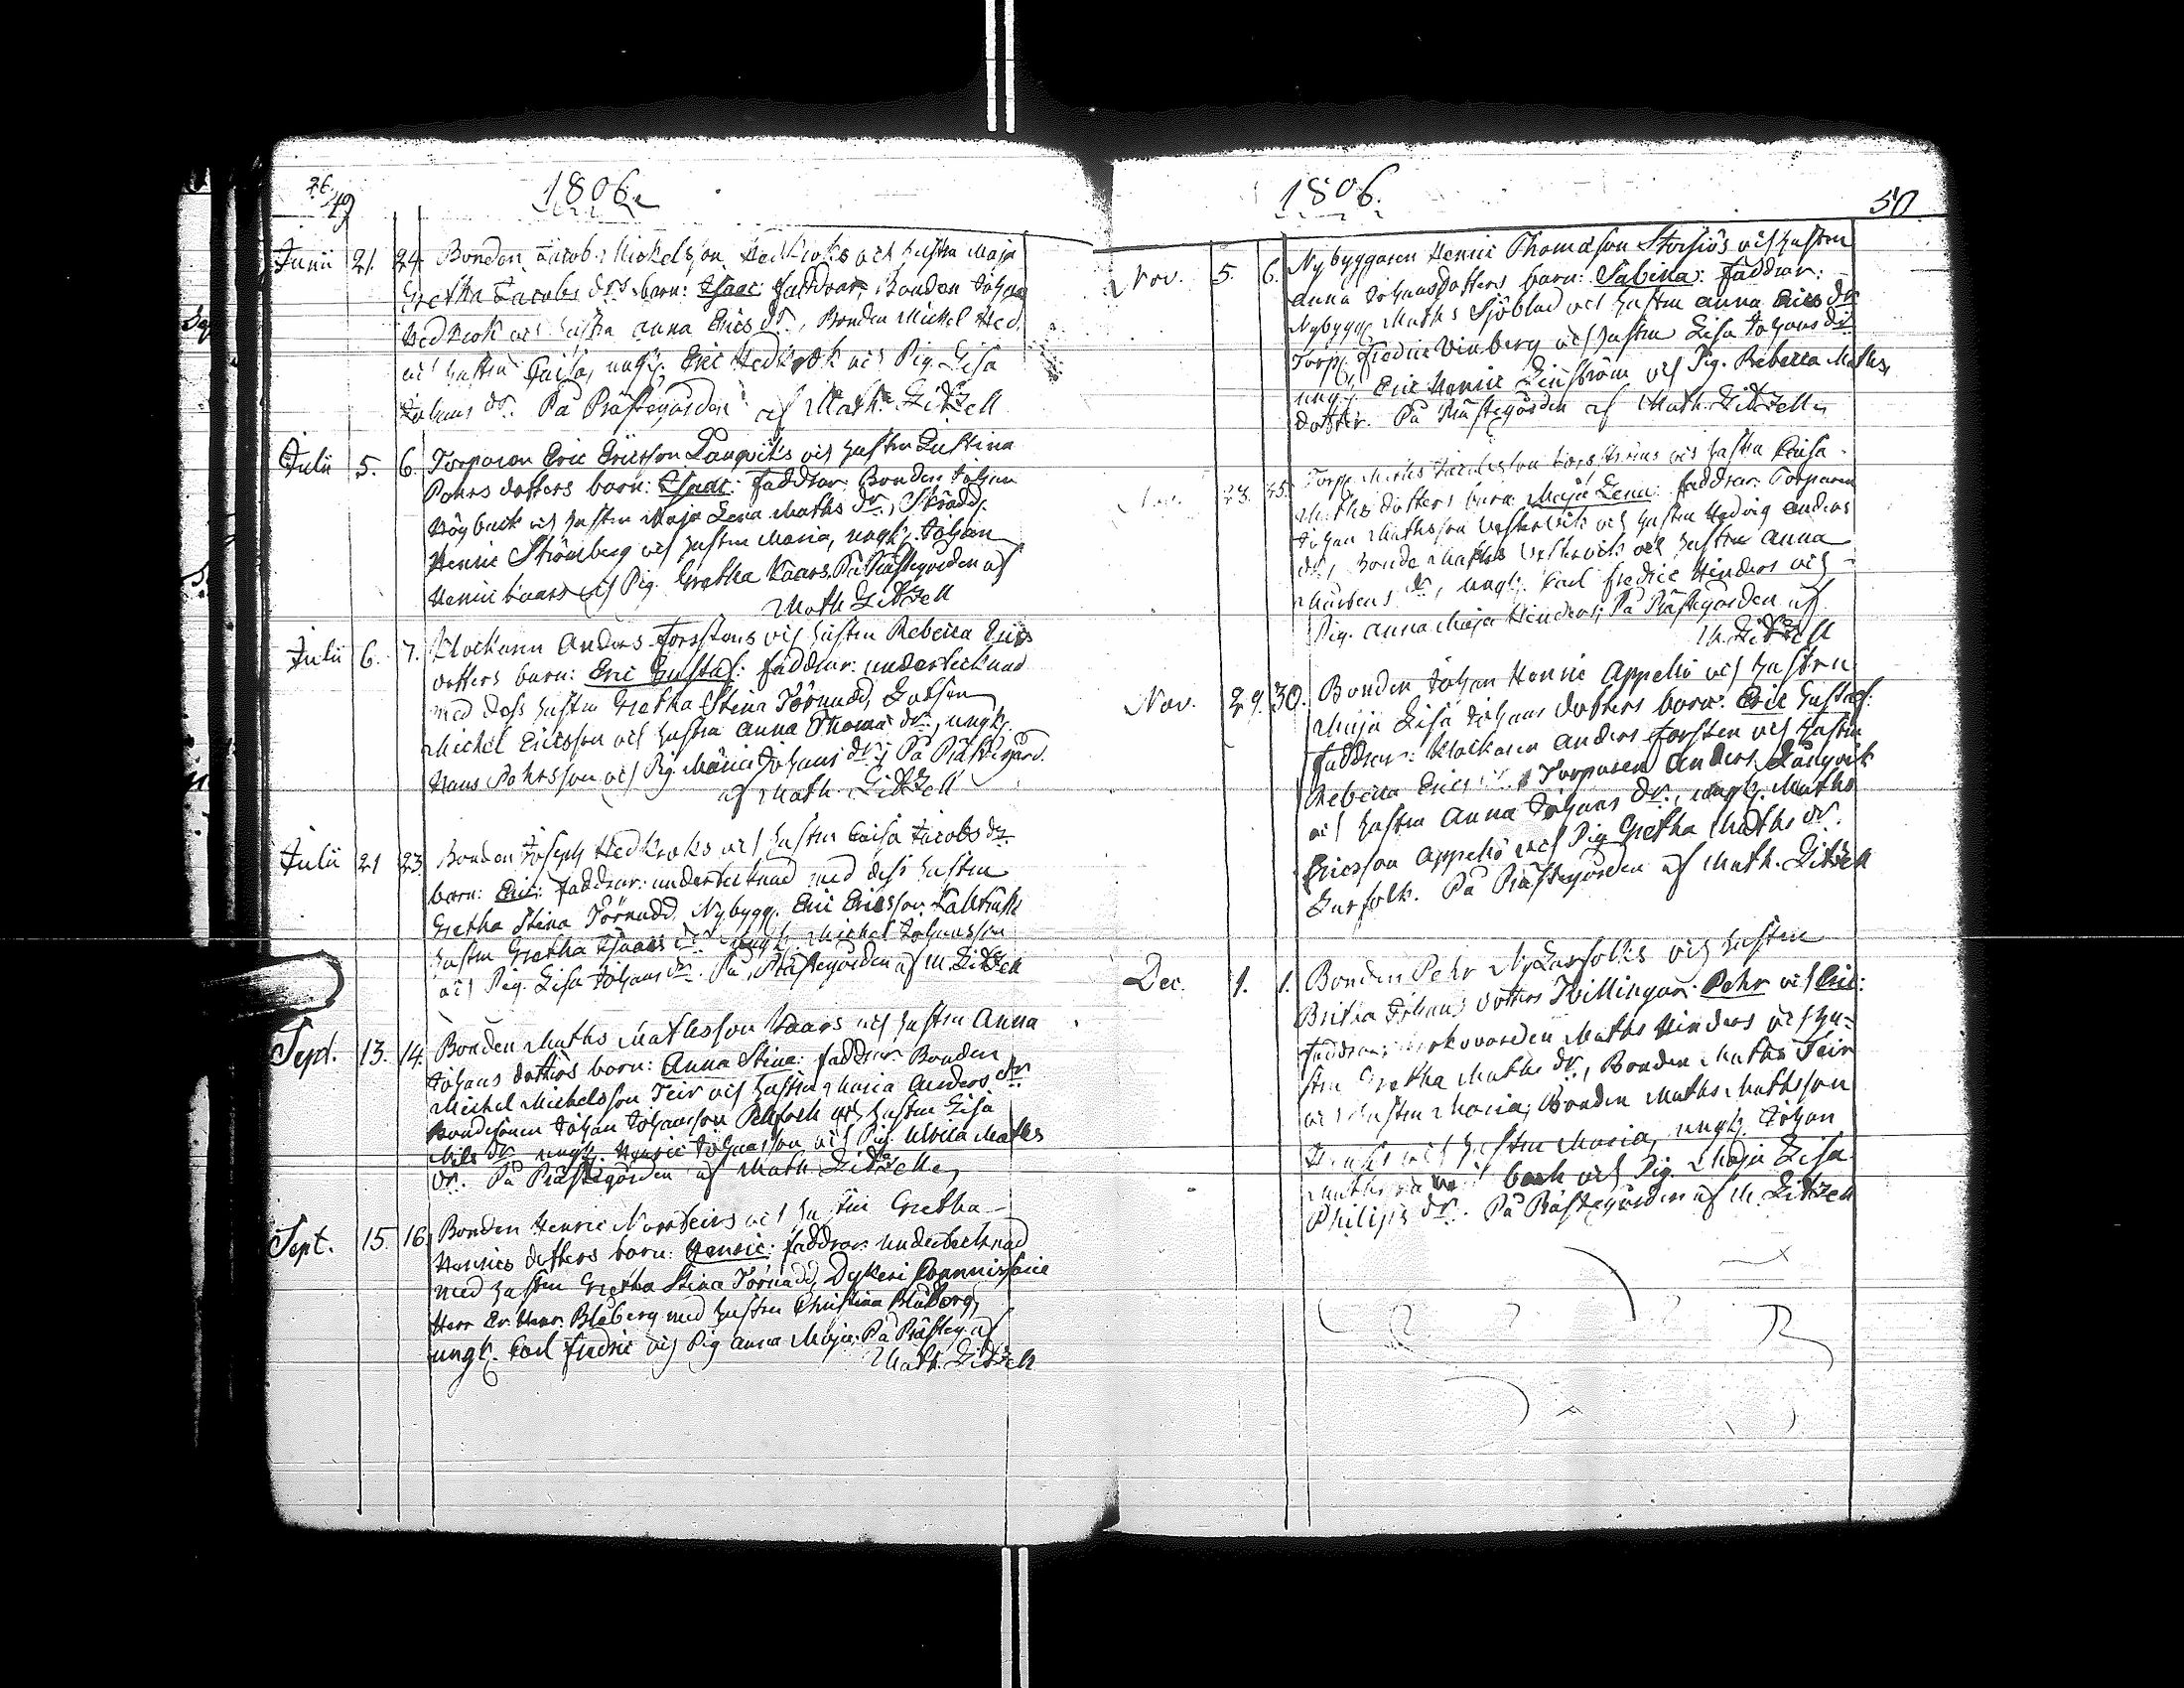 49
1806.
Junii 21. 24. Bonden Jacob Mickelsson Hedkroks och hustru Maja
Gretha Jacobs drs barn: Isaac: faddrar, Bonden Johan
Hedkrok och hustru Anna Erics dr., Bonden Mickel Hed.
och hustru Caisa, ungk. Eric Hedkrok och Pig. Lisa
Johans dr. På Prästegården af Math. Litzell
Julii 5. 6. Torparen Eric Ericsson Långviks och hustru Lustina
Pehrs dotters barn: Isaac: faddrar: Bonden Johan
Högback och hustru Maja Lena Maths dr., Skrädd.
Henric Strömberg och hustru Maria, ungk. Johan
Henric Kaars och Pig. Gretha Kaars. På Prästegården af
Math Litzell
Julii 6. 7. Klockaren Anders Forsstens och hustru Rebecca Erics
dotters barn: Eric Gustaf: faddrar: undertecknad
med dess hustru Gretha Stina Törnudd, Lotsen
Michel Ericsson och hustru Anna Thomæ dr., ungk.
Hans Pehrsson och Pig. Maria Johans dr; På Prästegård.
af Math. Litzell
Julii 21 23 Bonden Joseph Hedkroks och hustru Caisa Jacobs dr
barn: Eric: faddrar: undertecknad med dess hustru
Gretha Stina Törnudd, Nybygg. Eric Ericsson
hustru Gretha Isaacs dr ungk. Michel Johansson
och Pig. Lisa Johans dr. På Prästegården af M. Litzell
Sept. 13. 14. Bonden Maths Mathsson Kaars och hustru Anna
Johans dotters barn: Anna Stina: faddrar Bonden
Michel Michelsson Teir och hustru Maria Anders dr
Bondesonen Johan Johansson och hustru Lisa
Nils dr ungk. Henric Johansson och Pig. Ulrica Maths
dr. På Prästegården af Math Litzell
Sept. 15. 16. Bonden Henric Norrteirs och hustru Gretha
Henrics dotters barn: Henric: faddrar: undertecknad
med hustru Gretha Stina Törnudd, Dykeri Commissarie
Herr Er. Henr. Blåberg med hustru Christina Blåberg,
ungk. Carl Fredric och Pig Anna Maja. På Prästeg. af
Math. Litzell
1806.
50.
Nov. 5. 6. Nybyggaren Henric Thomasson Storsiös och hustru
Anna Johansdotters barn: Sabina: faddrar:
Nybygg. Maths Sjöblad och hustru Anna Erics dr
Torp. Fredric Vinberg och hustru Lisa Johans dr
ungk. Eric Henric Lindström och Pig. Rebecca Maths
dotter. På Prästegården af Math. Litzell
23. 25. Torp. Maths hustru Caisa
Maths dotters barn: Maja Lena: faddrar: Torparen
Johan Mathsson Westervik och hustru Hedvig Anders
dr, Bonde Maths Westervik och hustru Anna
Mårtens dr, ungk. Carl Fredric Hinders och
Pig. Anna Maja Hinders; På Prästegården af
M. Litzell
Nov. 29. 30. Bonden Johan Henric Appellö och hustru
Maja Lisa Johans dotters barn: Eric Gustaf:
faddrar: Klockaren Anders Forsten och hustru
Rebecca Erics dr, Torparen Anders Långvik
och hustru Anna Johans dr., ungk. Maths
Ericsson Appellö och Pig Gretha Maths dr.
Larfolk. På Prästegården af Math. Litzell
Dec. 1. 1. Bonden Pehr NyLarfolks och hustru
Britha Johans dotters Tvillingar: Pehr och Eric:
faddrar: Kyrkovärden Maths Hinders och hu-
stru Gretha Maths dr, Bonden Maths Teir
och hustru Maria, Bonden Maths Mathsson
och hustru Maria, ungk. Johan
back och Pig. Maja Lisa
Philips dr. På Prästegården af M. Litzell